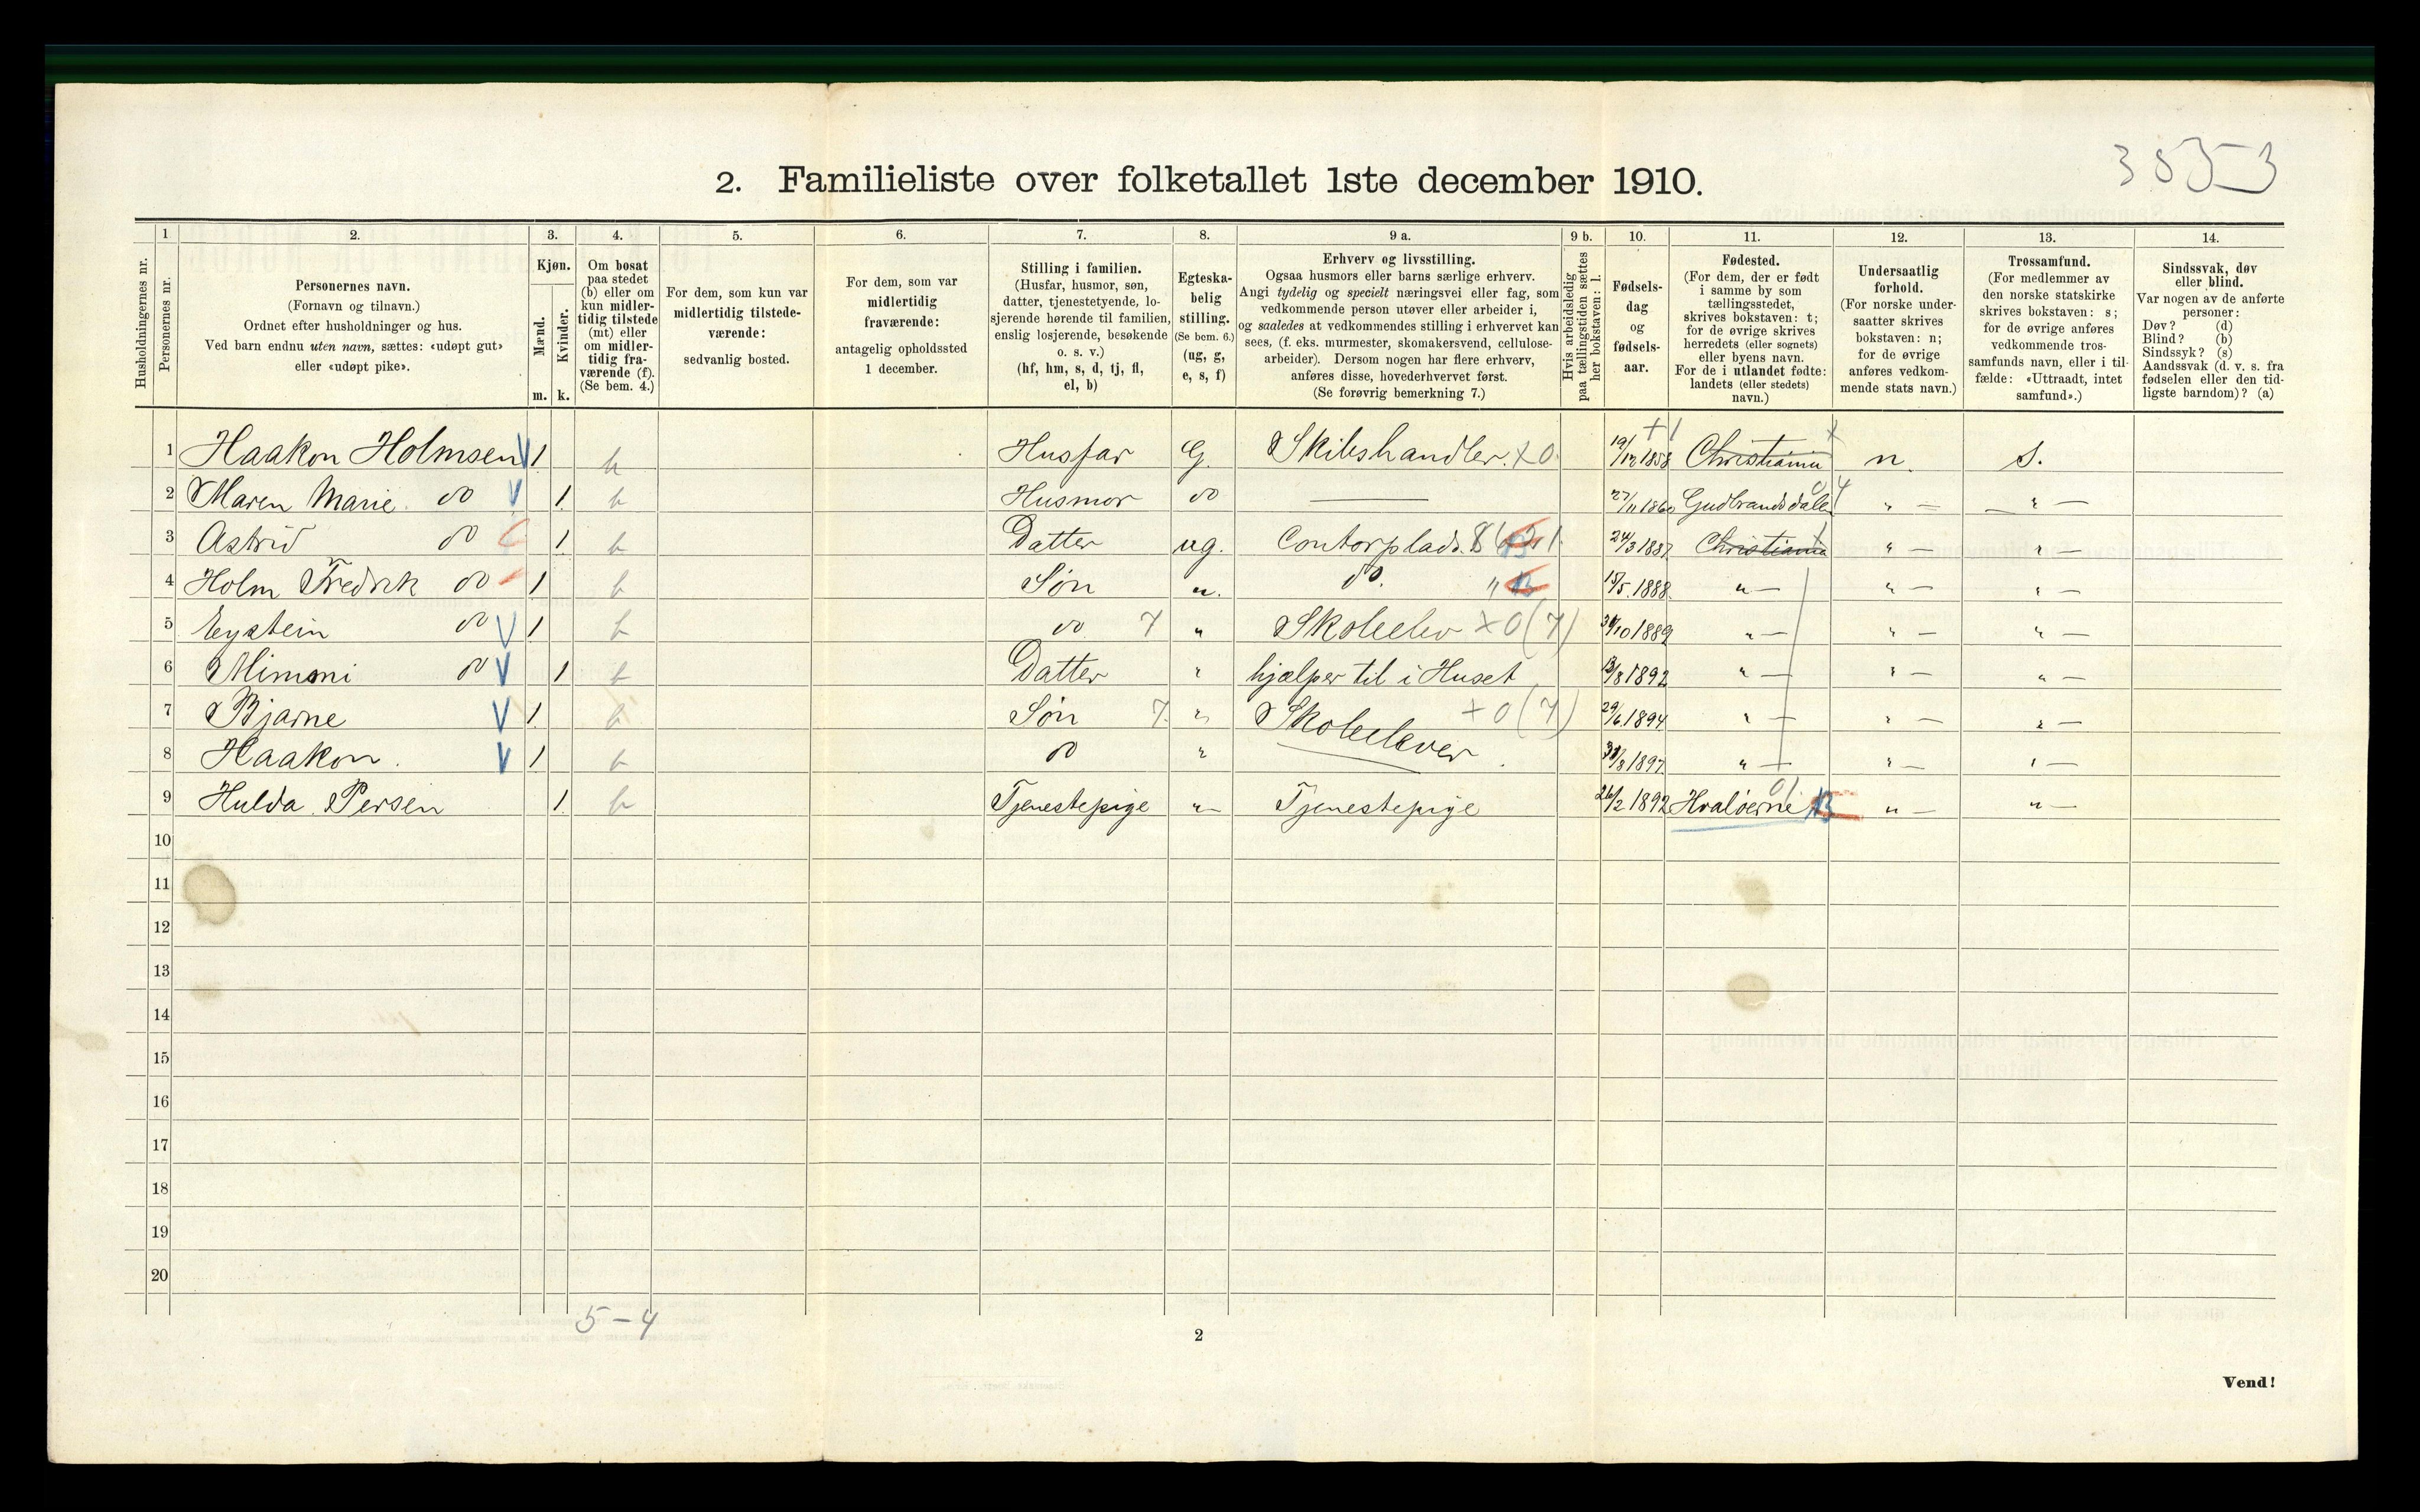 3853
2. Familieliste over folketallet 1ste december 1910.
Husholdningernes nr.
1
Personernes nr.
2.
Personernes navn.
(Fornavn og tilnavn.)
Ordnet efter husholdninger og hus.
Ved barn endnu uten navn, sættes: «udøpt gut»
eller «udøpt pike».
3.
Kjøn.
Mænd.
Kvinder.
m. k.
4.
Om bosat
paa stedet
(b) eller om
kun midler-
tidig tilstede
(mt) eller
om midler-
tidig fra-
værende (f).
(Se bem. 4.)
5.
For dem, som kun var
midlertidig tilstede-
værende:
sedvanlig bosted.
6.
For dem, som var
midlertidig
fraværende:
antagelig opholdssted
1 december.
7.
Stilling i familien.
(Husfar, husmor, søn,
datter, tjenestetyende, lo-
sjerende hørende til familien,
enslig losjerende, besøkende
o. s. v.)
(hf, hm, s, d, tj, fl,
el, b)
8.
Egteska-
belig
stilling.
(Se bem. 6.)
(ug, g,
e, s, f)
9 a.
Erhverv og livsstilling.
Ogsaa husmors eller barns særlige erhverv.
Angi tydelig og specielt næringsvei eller fag, som
vedkommende person utøver eller arbeider i,
og saaledes at vedkommendes stilling i erhvervet kan
sees, (f. eks. murmester, skomakersvend, cellulose-
arbeider). Dersom nogen har flere erhverv,
anføres disse, hovederhvervet først.
(Se forøvrig bemerkning 7.)
9 b.
Hvis arbeidsledig
paa tællingstiden sættes
her bokstaven: l.
10.
Fødsels-
dag
og
fødsels-
aar.
11.
Fødested.
(For dem, der er født
i samme by som
tællingsstedet,
skrives bokstaven: t;
for de øvrige skrives
herredets (eller sognets)
eller byens navn.
For de i utlandet fødte:
landets (eller stedets)
navn.)
12.
Undersaatlig
forhold.
(For norske under-
saatter skrives
bokstaven: n;
for de øvrige
anføres vedkom-
mende stats navn.)
13.
Trossamfund.
(For medlemmer av
den norske statskirke
skrives bokstaven: s;
for de øvrige anføres
vedkommende tros-
samfunds navn, eller i til-
fælde: «Uttraadt, intet
samfund».)
14.
Sindssvak, døv
eller blind.
Var nogen av de anførte
personer:
Døv? (d)
Blind? (b)
Sindssyk? (s)
Aandssvak (d. v. s. fra
fødselen eller den tid-
ligste barndom)? (a)
1 Haakon Holmsen V 1 b Husfar G. Skibshandler. x0 19/12 1858 +1 Christiania x n. s.
2 Maren Marie do V 1 b Husmor do — 27/11 1860 Gudbrandsdalen 04 " — " —
3 Astrid do 1 b Datter ug. Contorplads. 24/3 1887 Christiania " — " —
4 Holm Fredrik do 1 b Søn ". do. " 15/5. 1888 " — " — " —
5 Eystein do V 1 b do 7 " Skoleelev x0(7) 30/10 1889 " — " — " —
6 Mimmi do V 1 b Datter " hjælper til i Huset 13/8 1892 " — " — " —
7 Bjarne V 1 b Søn 7 " Skoleelever x0(7) 29/6. 1894 " — " — " —
8 Haakon. V 1 b do " 1897 " — " — " —
9 Hulda Persen 1 b Tjenestepige " — Tjenestepige 26/2 1892 Hvaløerne 01 " — " —
10
11
12
13
14
15
16
17
18
19
20
5 – 4
2
Vend!